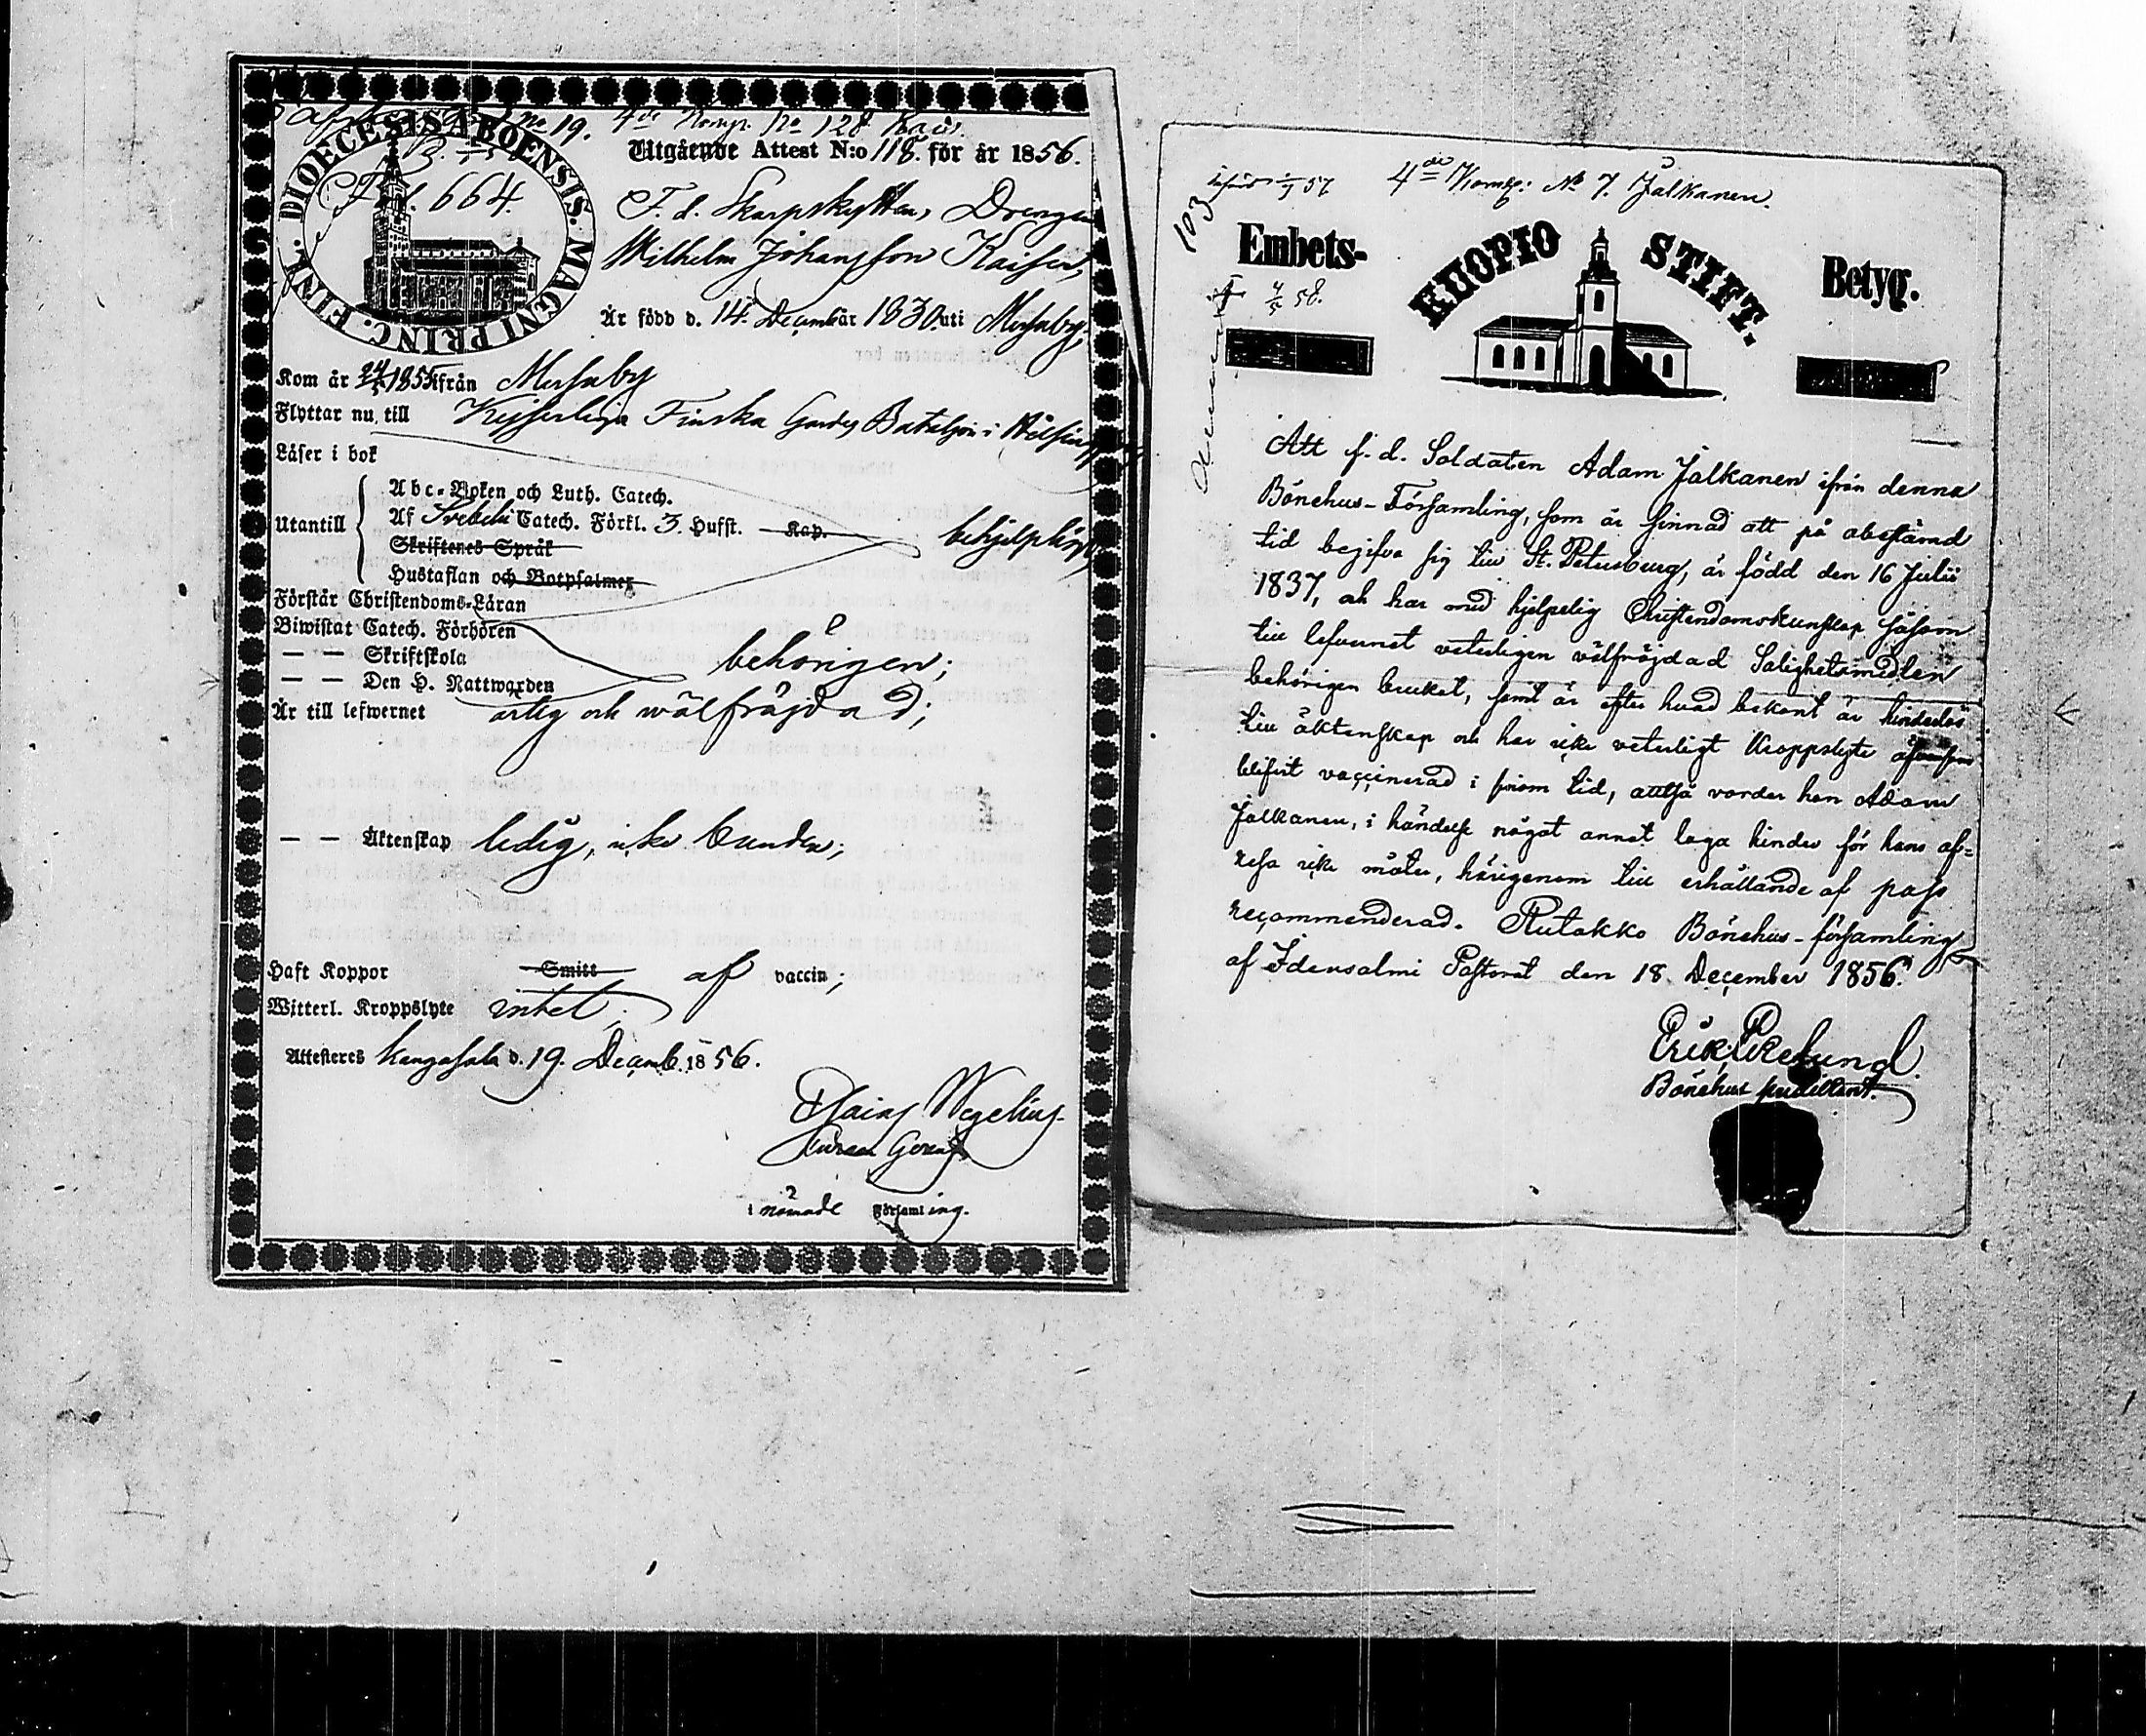 No 19. 4de Komp. No 128
DIOECESIS ABOENSIS. MAGNI PRINC. FINL.
Fol. 664.
Utgående Attest N:o 118. för år 1856.
F. d. Skarpskytten, Drengen
Wilhelm Johansson Kaiser,
Är född d. 14. Decembr år 1830. uti Messuby,
Kom år från Messuby
Flyttar nu till Kejserliga Finska Gardes Bataljon i
Läser i bok
Utantill
Abc-Boken och Luth. Catech.
Af Svebelii Catech. Förkl. 3. Hufst. Kap.
behjelpligt,
Skriftenes Språk
Hustaflan och Botpsalmer
Förstår Christendoms-Läran
Biwistat Catech. Förhören
— — Skriftskola behörigen;
— — Den H. Nattwarden
Är till lefwernet ärlig och wälfräjdad;
— — Äktenskap ledig, icke bunden;
Haft Koppor Smitt af vaccin;
Witterl. Kroppslyte intet;
Attesteres Kangasala d. 19. Decemb. 1856.
Wegelius
i nämnde Församling.
103
57 4de Komp: No 7. Jalkanen.
Embets- KUOPIO STIFT. Betyg.
58.
Att f. d. Soldaten Adam Jalkanen ifrån denna
Bönehus-Församling, som är sinnad att på obestämd
tid begifva sig till St. Petersburg, är född den 16 Julii
1837, och har med hjelpelig Christendomskunskap såsom
till lefvernet veterligen välfräjdad Salighetsmedlen
behörigen brukat, samt är efter hvad bekant är hinderlös
till äktenskap och har icke veterligt Kroppslyte
blifvit vaccinerad i sinom tid, alltså varder han Adam
Jalkanen, i händelse något annat laga hinder för hans af-
resa icke möter, härigenom till erhållande af pass
recommenderad. Rutakko Bönehus-församling
af Idensalmi Pastorat den 18 December 1856.
Erik
Bönehus predikant.